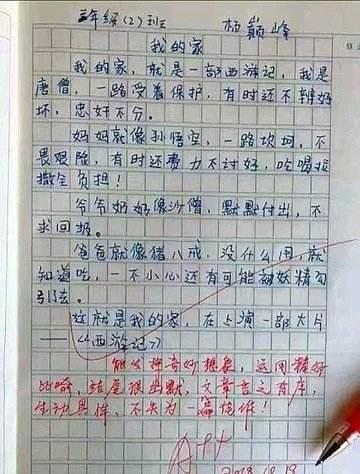 二年级(2)班 杨巅峰
我的家
我的家，就是一部西游记，我是
唐僧，一路受着保护，有时还不辨好
坏，忠奸不分。
妈妈就像孙悟空，一路坎坷，不
畏艰险，有时还费力不讨好，吃喝拉
撒全负担！
爷爷奶奶像沙僧，默默付出，不
求回报。
爸爸就像猪八戒，没什么用，就
知道吃，一不小心还有可能被妖精勾
引去。
这就是我的家，在上演一部大片
——《西游记》
能发挥奇妙想象，运用精妙
比喻，结尾很幽默，文章言之有序，
生动具体，不失为一篇佳作！
A++
2018.12.19